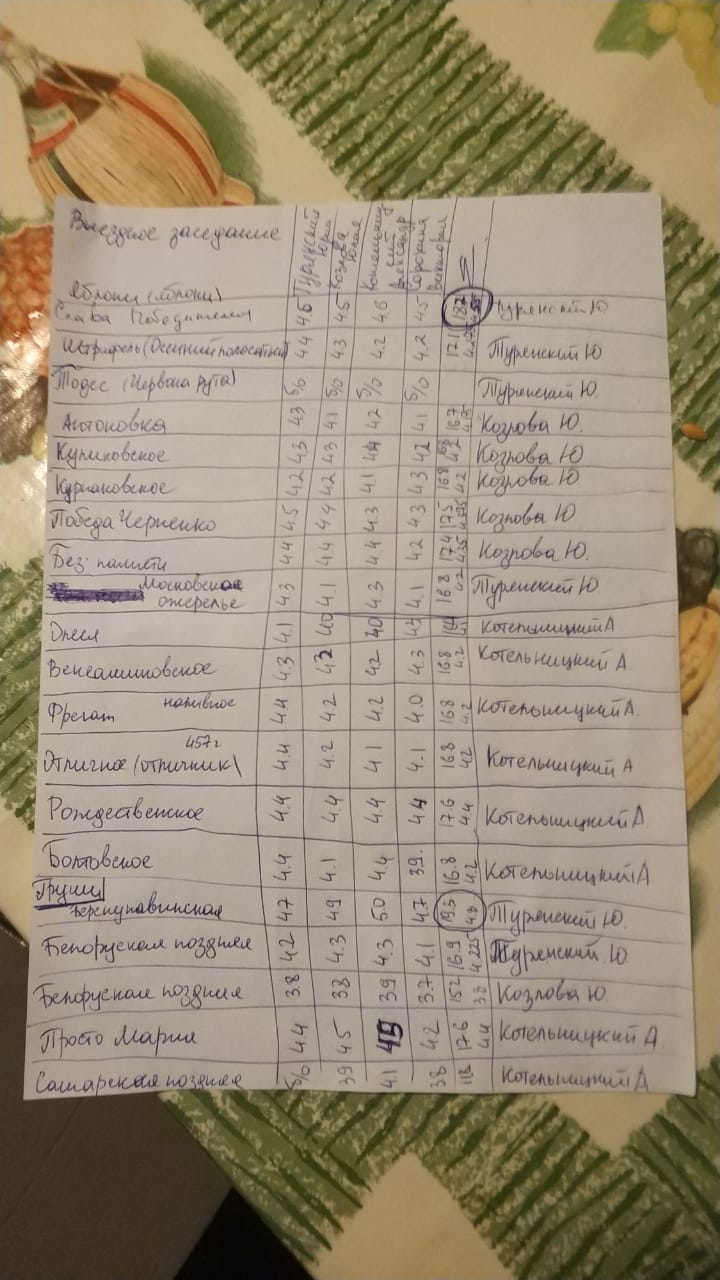 Выездное заседание
Турянский Юрий
Козлова Юлия
Котельницкий Александр
Сорокина Виктория
Яблоки (яблоки)
Слава Победителям 4.6 4.5 4.6 4.5 18.2 4.55 Турянский Ю
Штрифель (Осенний полосатый) 4.4 4.3 4.2 4.2 17.1 4.275 Турянский Ю
Тодес (Червона рута) б/о б/о б/о б/о Турянский Ю.
Антоновка 4.3 4.1 4.2 4.1 16.7 4.175 Козлова Ю.
Куликовское 4.3 4.3 4.4 4.2 4.2 Козлова Ю
Курнаковское 4.2 4.2 4.1 4.3 16.8 4.2 Козлова Ю
Победа Черненко 4.5 4.4 4.3 4.3 17.5 4.375 Козлова Ю
Без памяти 4.4 4.4 4.4 4.2 17.4 4.35 Козлова Ю.
Московское ожерелье 4.3 4.1 4.3 4.1 16.8 4.2 Турянский Ю
Олеся 4.1 40 40 45 4.1 Котельницкий А
Вениаминовское 4.3 4.2 4.2 4.3 16.8 4.2 Котельницкий А.
Фрегат наливное 4.4 4.2 4.2 4.0 16.8 4.2 Котельницкий А.
457г
Отличное (отличник) 4.4 4.2 4.1 4.1 16.8 4.2 Котельницкий А
Рождественское 4.4 4.4 4.4 4.4 17.6 4.4 Котельницкий А.
Болтовское 4.4 4.1 4.4 39. 16.8 4.2 Котельницкий А
Груши
Бережулавинская 47 49 5.0 4.7 19.3 4.8 Турянский Ю.
Белоруская поздняя 42 4.3 4.3 4.1 16.9 4.225 Турянский Ю.
Белоруская поздняя 3.8 38 39 3.7 15.2 3.8 Козлова Ю.
Просто Мария 4.4 45 45 4.2 17.6 4.4 Котельницкий А.
Самарская поздняя б/о 39 4.1 3.8 11.8 Котельницкий А